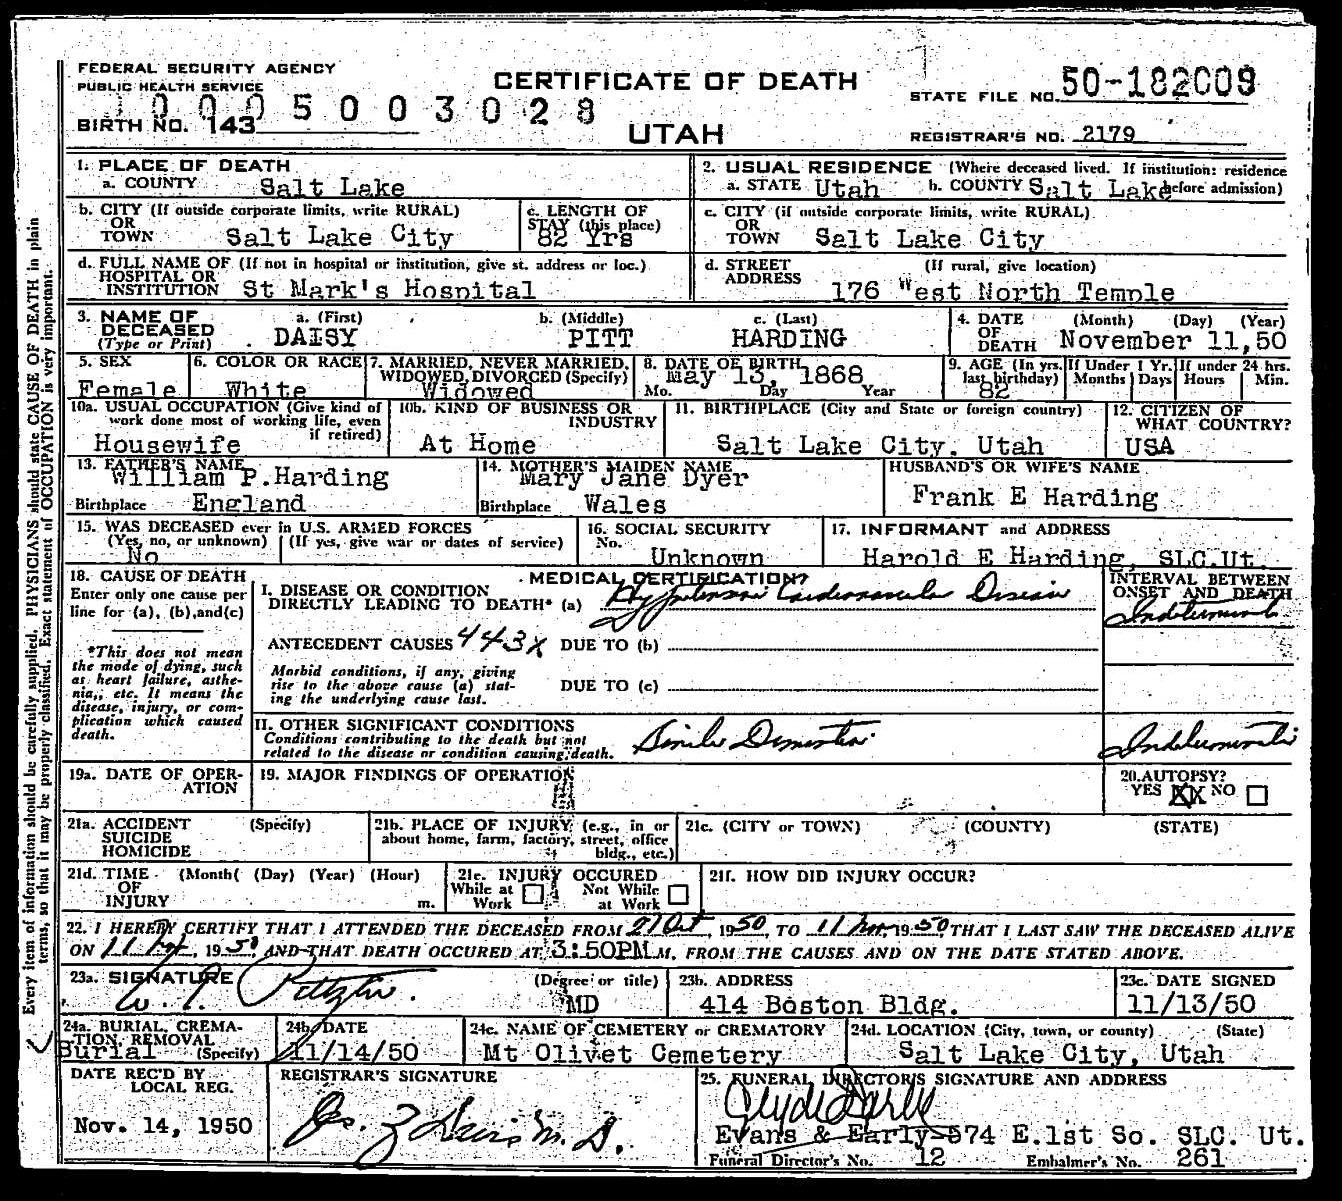 FEDERAL SECURITY AGENCY
PUBLIC HEALTH SERVICE
CERTIFICATE OF DEATH
STATE FILE NO. 50-182009
10005003028
BIRTH NO. 143
UTAH
REGISTRAR'S NO. 2179
1. PLACE OF DEATH
a. COUNTY Salt Lake
2. USUAL RESIDENCE (Where deceased lived. If institution: residence before admission)
a. STATE Utah b. COUNTY Salt Lake
b. CITY (If outside corporate limits, write RURAL)
OR
TOWN Salt Lake City
c. LENGTH OF
STAY (this place)
82 Yrs
c. CITY (if outside corporate limits, write RURAL)
OR
TOWN Salt Lake City
d. FULL NAME OF (If not in hospital or institution, give st. address or loc.)
HOSPITAL OR
INSTITUTION St Mark's Hospital
d. STREET (If rural, give location)
ADDRESS
176 West North Temple
3. NAME OF DECEASED
(Type or Print)
a. (First) b. (Middle) c. (Last)
DAISY PITT HARDING
4. DATE OF DEATH (Month) (Day) (Year)
November 11,50
5. SEX
Female
6. COLOR OR RACE
White
7. MARRIED, NEVER MARRIED,
WIDOWED, DIVORCED (Specify)
Widowed
8. DATE OF BIRTH
May 13, 1868
Mo. Day Year
9. AGE (In yrs. last birthday)
82
If Under 1 Yr. If under 24 hrs.
Months Days Hours Min.
10a. USUAL OCCUPATION (Give kind of
work done most of working life, even
if retired)
Housewife
10b. KIND OF BUSINESS OR
INDUSTRY
At Home
11. BIRTHPLACE (City and State or foreign country)
Salt Lake City, Utah
12. CITIZEN OF
WHAT COUNTRY?
USA
13. FATHER'S NAME
William P.Harding
Birthplace England
14. MOTHER'S MAIDEN NAME
Mary Jane Dyer
Birthplace Wales
HUSBAND'S OR WIFE'S NAME
Frank E Harding
15. WAS DECEASED ever in U.S. ARMED FORCES
(Yes, no, or unknown) (If yes, give war or dates of service)
No
16. SOCIAL SECURITY
No.
Unknown
17. INFORMANT and ADDRESS
Harold E Harding, SLC.Ut.
18. CAUSE OF DEATH
Enter only one cause per
line for (a), (b),and(c)
*This does not mean
the mode of dying, such
as heart failure, asthe-
nia,, etc. It means the
disease, injury, or com-
plication which caused
death.
MEDICAL CERTIFICATION?
I. DISEASE OR CONDITION
DIRECTLY LEADING TO DEATH* (a) Hypertensive Cardiovascular Disease
ANTECEDENT CAUSES 443X DUE TO (b)
Morbid conditions, if any, giving
rise to the above cause (a) stat-
ing the underlying cause last.
DUE TO (c)
II. OTHER SIGNIFICANT CONDITIONS
Conditions contributing to the death but not
related to the disease or condition causing death.
Senile Dementia
INTERVAL BETWEEN
ONSET AND DEATH
Indeterminate
Indeterminate
19a. DATE OF OPER-
ATION
19. MAJOR FINDINGS OF OPERATION
20. AUTOPSY?
YES XX NO
21a. ACCIDENT (Specify)
SUICIDE
HOMICIDE
21b. PLACE OF INJURY (e.g., in or
about home, farm, factory, street, office
bldg., etc.)
21c. (CITY or TOWN) (COUNTY) (STATE)
21d. TIME (Month( (Day) (Year) (Hour)
OF
INJURY m.
21e. INJURY OCCURED
While at Work Not While at Work
21f. HOW DID INJURY OCCUR?
22. I HEREBY CERTIFY THAT I ATTENDED THE DECEASED FROM 27 Oct, 1950, TO 11 Nov. 1950, THAT I LAST SAW THE DECEASED ALIVE
ON 11 Nov, 1950 AND THAT DEATH OCCURED AT 3:50PM M. FROM THE CAUSES AND ON THE DATE STATED ABOVE.
23a. SIGNATURE
(Degree or title)
MD
23b. ADDRESS
414 Boston Bldg.
23c. DATE SIGNED
11/13/50
24a. BURIAL, CREMA-
TION, REMOVAL
Burial (Specify)
24b. DATE
11/14/50
24c. NAME OF CEMETERY or CREMATORY
Mt Olivet Cemetery
24d. LOCATION (City, town, or county) (State)
Salt Lake City, Utah
DATE REC'D BY
LOCAL REG.
Nov. 14, 1950
REGISTRAR'S SIGNATURE
25. FUNERAL DIRECTOR'S SIGNATURE AND ADDRESS
Clyde Early
Evans & Early-574 E.1st So. SLC. Ut.
Funeral Director's No. 12 Embalmer's No. 261
Every item of information should be carefully supplied. PHYSICIANS should state CAUSE OF DEATH in plain
terms, so that it may be properly classified. Exact statement of OCCUPATION is very important.